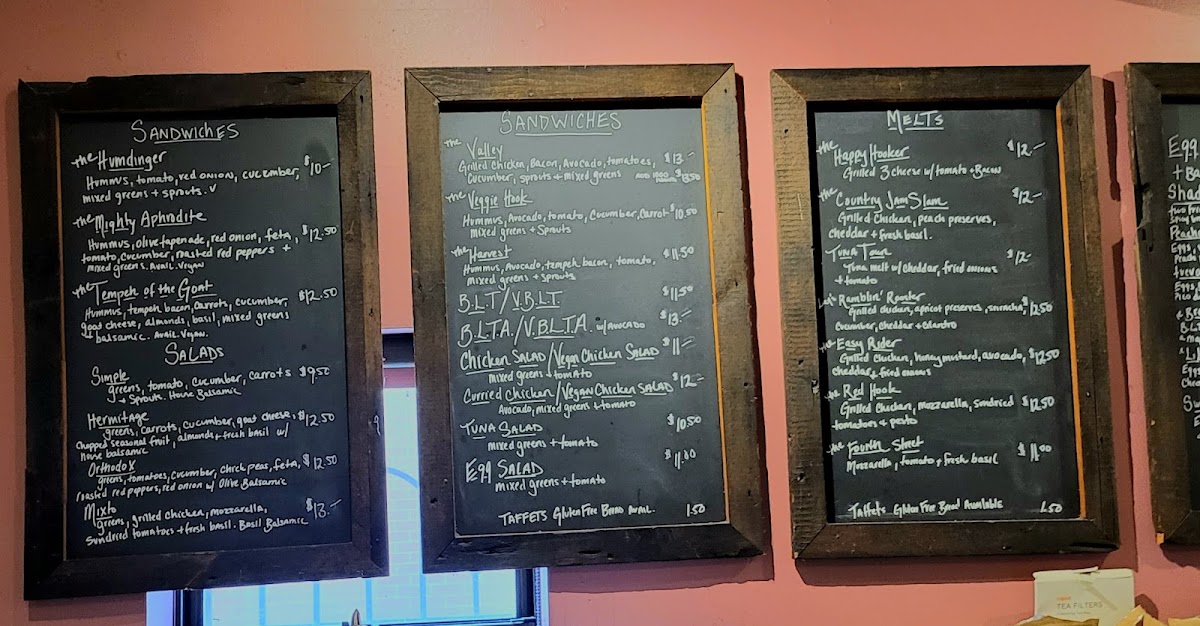 SANDWICHES
The Humdinger $10-
Hummus, tomato, red onion, cucumber,
mixed greens + sprouts. V
The Mighty Aphrodite
Hummus, olive tapenade, red onion, feta, $12.50
tomato, cucumber, roasted red peppers +
mixed greens. Avail. Vegan
The Tempeh of the Goat
Hummus, tempeh bacon, carrots, cucumber, $12.50
goat cheese, almonds, basil, mixed greens
+ balsamic. Avail. Vegan.
SALADS
Simple
greens, tomato, cucumber, carrots $9.50
+ Sprouts. House Balsamic
Hermitage
greens, carrots, cucumber, goat cheese, $12.50
chopped seasonal fruit, almonds + fresh basil w/
house balsamic
Orthodox
greens, tomatoes, cucumber, chick peas, feta, $12.50
roasted red peppers, red onion w/ Olive Balsamic
Mixto $13.-
greens, grilled chicken, mozzarella,
Sundried tomatoes + fresh basil. Basil Balsamic
SANDWICHES
The Valley
Grilled Chicken, Bacon, Avocado, tomatoes, $13.-
Cucumber, sprouts + mixed greens $13.50
The Veggie Hook
Hummus, Avocado, tomato, Cucumber, Carrot $10.50
mixed greens + Sprouts
The Harvest $11.50
Hummus, Avocado, tempeh bacon, tomato,
mixed greens + sprouts
B.L.T/V.B.L.T $11.50
B.L.T.A./V.B.L.T.A. w/ AVOCADO $13.-
Chicken SALAD/Vegan Chicken SALAD $11.-
mixed greens + tomato
Curried Chicken/Vegan Chicken SALAD $12.-
Avocado, mixed greens + tomato
TUNA SALAD $10.50
mixed greens + tomato
Egg SALAD $11.00
mixed greens + tomato
TAFFETS Gluten Free Bread Avail. 1.50
MELTS
The Happy Hooker $12.-
Grilled 3 cheese w/ tomato + Bacon
The Country Jam Slam $12-
Grilled Chicken, peach preserves,
cheddar + fresh basil.
Tuna Town $12-
Tuna melt w/ cheddar, fried onions
+ tomato
Ramblin' Rooster
Grilled chicken, apricot preserves, sriracha, $12.50
Cucumber, cheddar + cilantro
The Easy Rider
Grilled Chicken, honey mustard, avocado, $12.50
cheddar + fried onions
The Red Hook
Grilled Chicken, mozzarella, sundried $12.50
tomatoes + pesto
The Fourth Street $11.00
Mozzarella, tomato, + fresh basil
Taffets Gluten Free Bread Available 1.50
TEA FILTERS